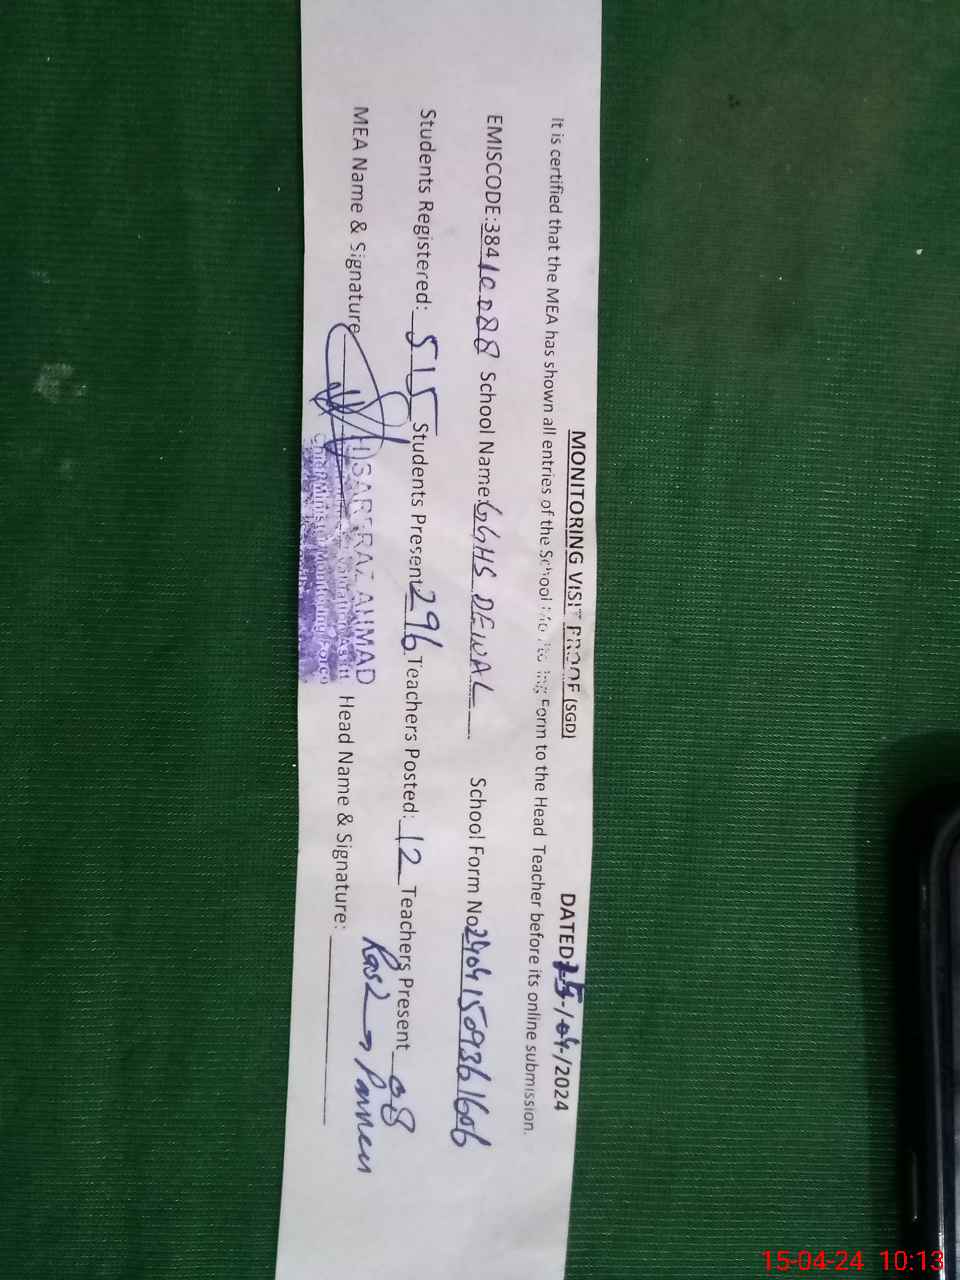 MONITORING VISIT PROOF (SGD) DATED 15/04/2024
It is certified that the MEA has shown all entries of the School Form to the Head Teacher before its online submission.
EMISCODE:38410088 School Name: GGHS DEWAL School Form No 24041509361606
Students Registered: 515 Students Present 296 Teachers Posted: 12 Teachers Present 08
MEA Name & Signature Head Name & Signature:
SARFRAZ AHMAD
Chief Minister Monitoring Force
15-04-24 10:13